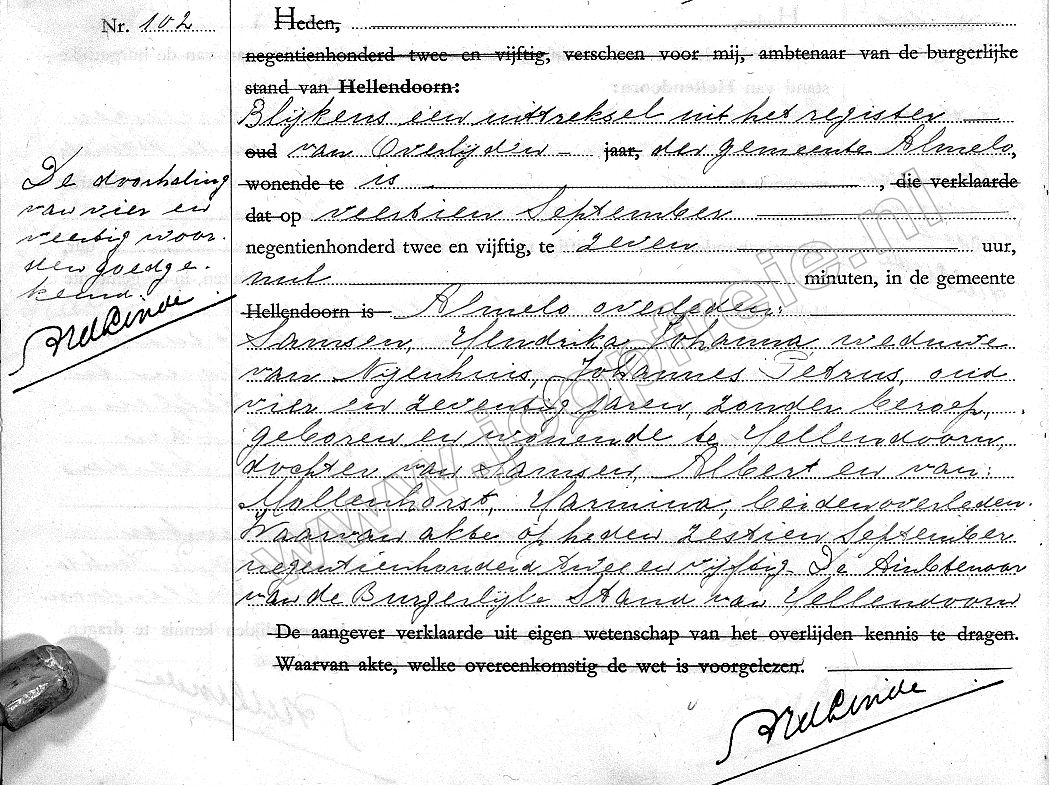 Nr. 102
Heden,
negentienhonderd twee en vijftig, verscheen voor mij, ambtenaar van de burgerlijke
stand van Hellendoorn:
Blijkens een uittreksel uit het register
oud van Overlijden jaar, der gemeente Almelo,
wonende te is , die verklaarde
dat op veertien September
negentienhonderd twee en vijftig, te zeven uur,
nul minuten, in de gemeente
Hellendoorn is Almelo overleden:
Samsen, Hendrika Johanna, weduwe
van Nijenhuis, Johannes Petrus, oud
vier en zeventig jaren, zonder beroep,
geboren en wonende te Hellendoorn,
dochter van Samsen, Albert en van:
Mollenhorst, Harmina, beiden overleden.
Waarvan akte op heden zestien September
negentienhonderd twee en vijftig. De Ambtenaar
van de Burgerlijke Stand van Hellendoorn
De aangever verklaarde uit eigen wetenschap van het overlijden kennis te dragen.
Waarvan akte, welke overeenkomstig de wet is voorgelezen.
De doorhaling
van vier en
veertig woor-
den goedge-
keurd.
www.jooptreie.nl